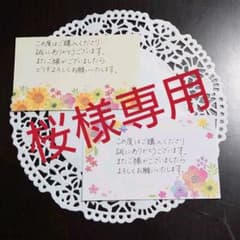 この度はご購入くださり
誠にありがとうございます。
またご縁がございましたら
どうぞよろしくお願いいたします。
桜様専用
この度はご購入くださり
誠にありがとうございます。
またご縁がございましたら
よろしくお願いいたします。